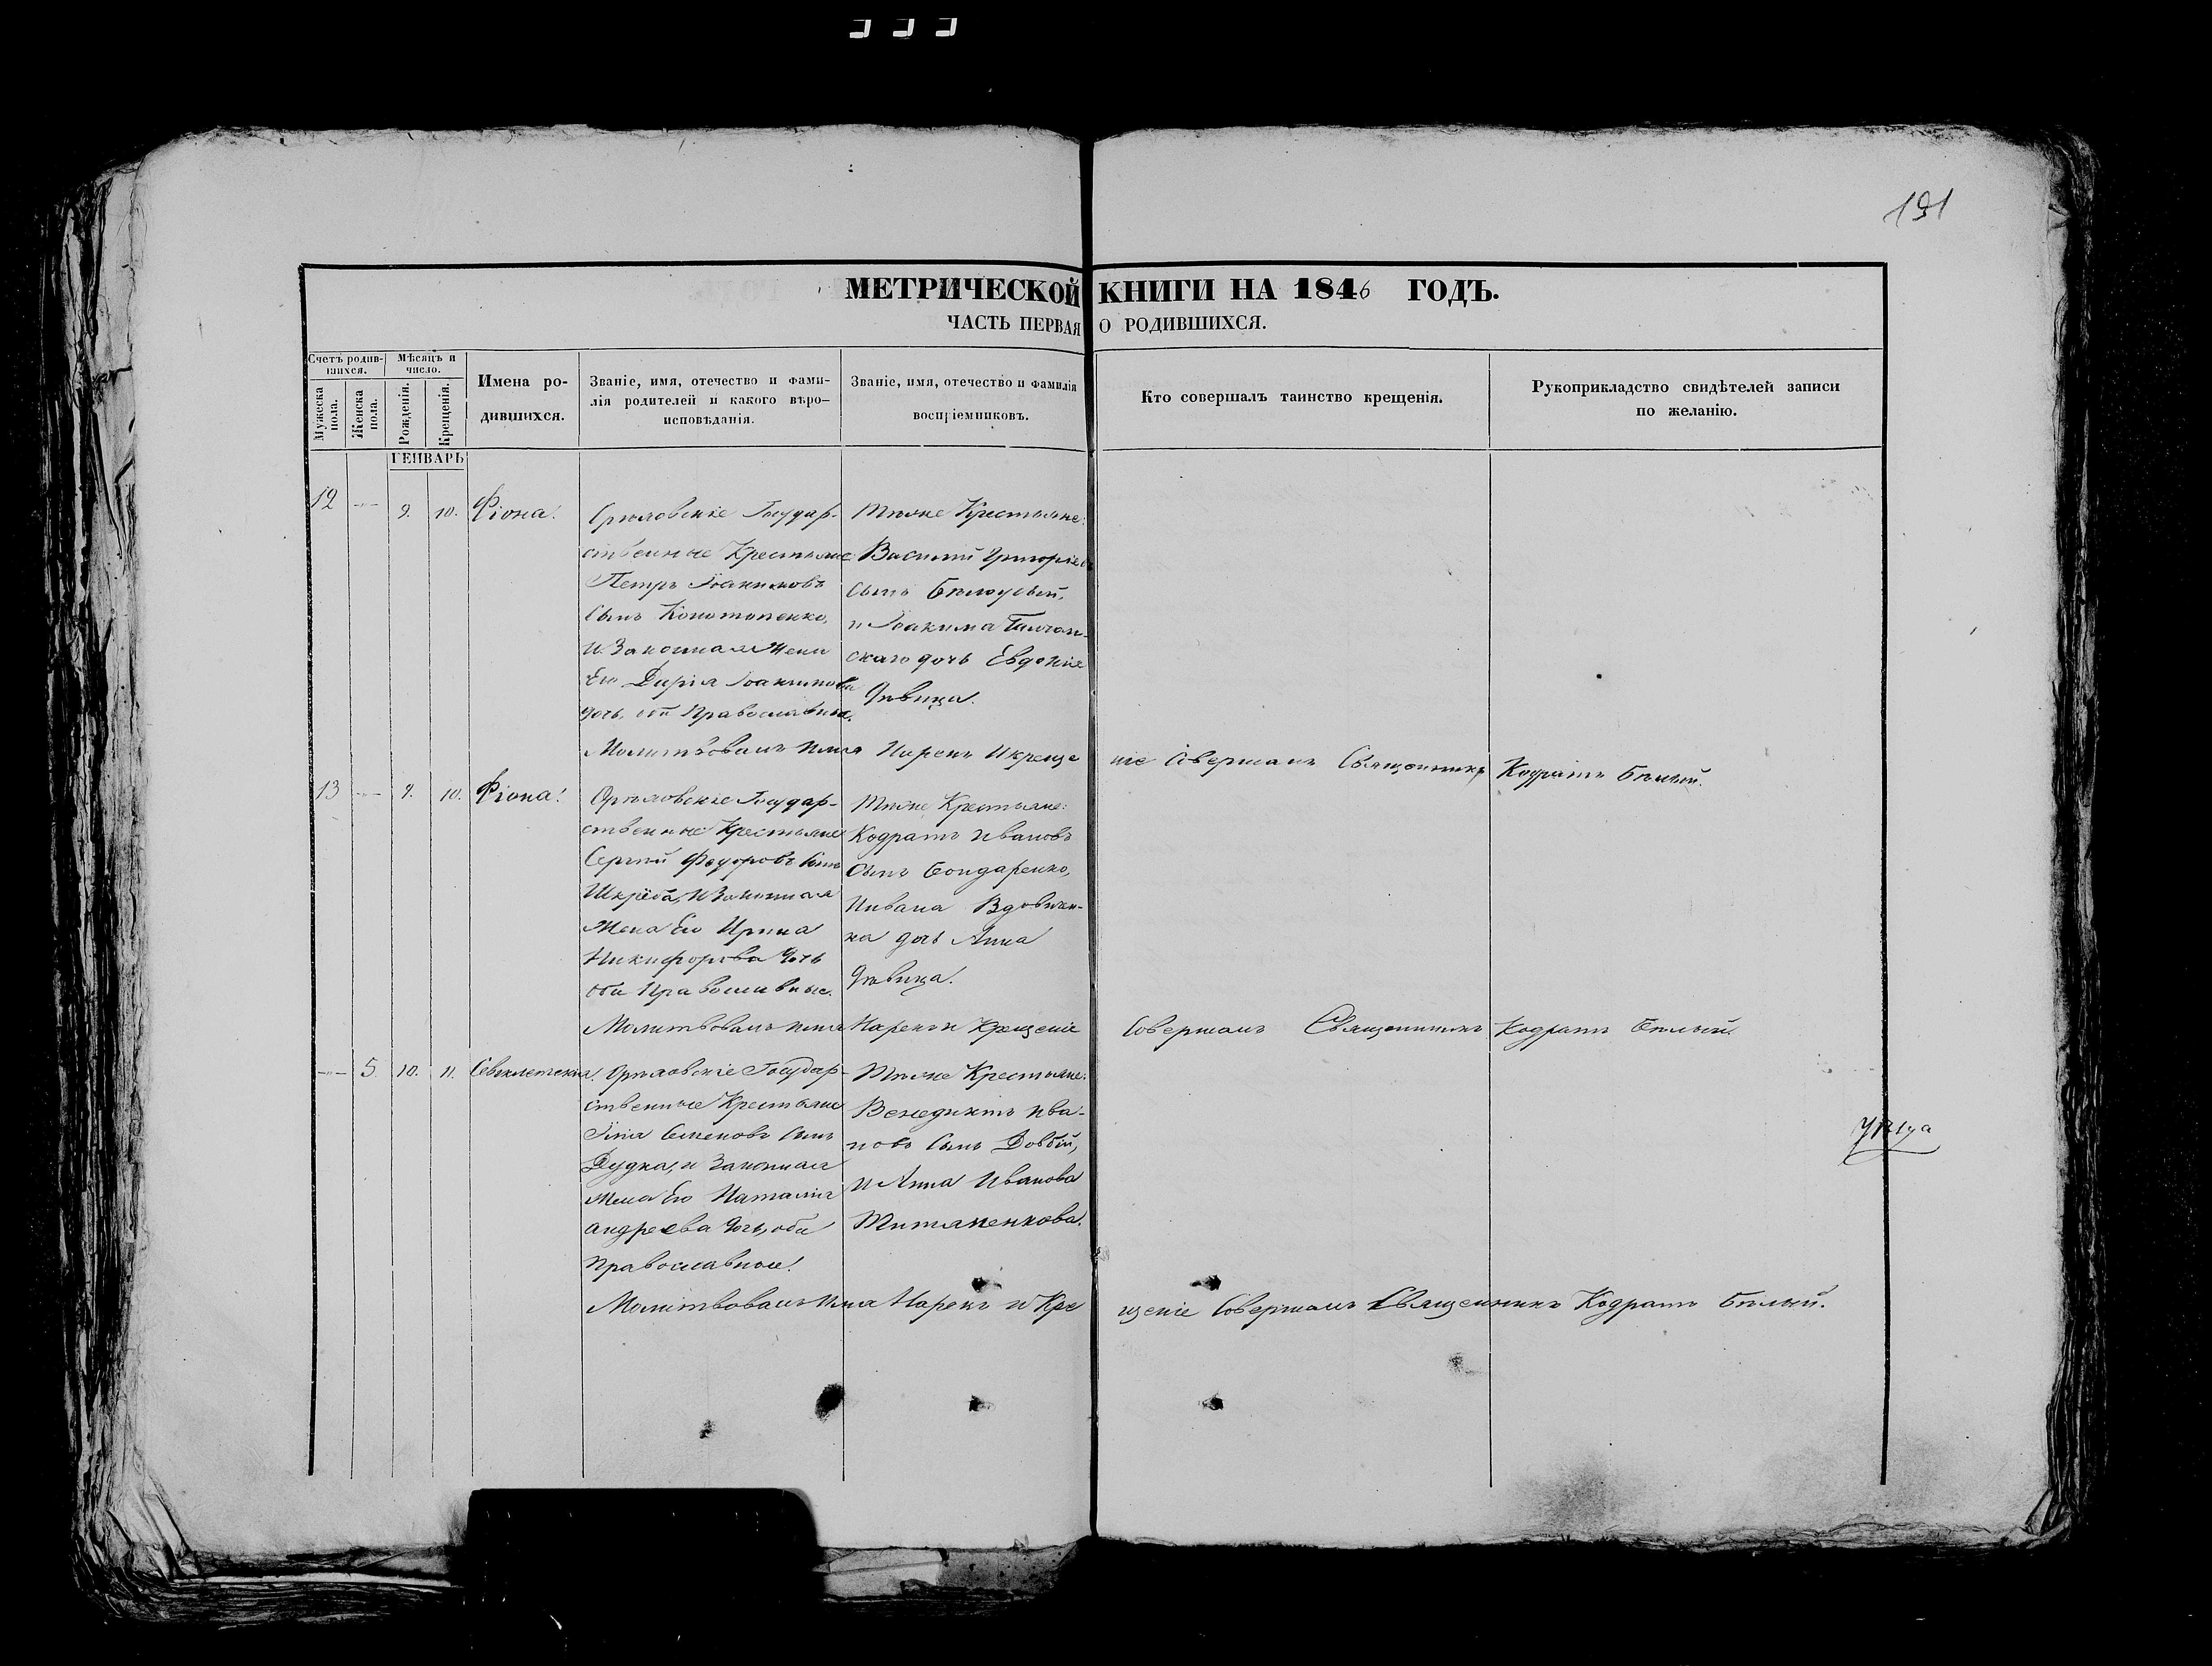 191
МЕТРИЧЕСКОЙ КНИГИ НА 1846 ГОДЪ.
ЧАСТЬ ПЕРВАЯ О РОДИВШИХСЯ.
Счетъ родив-
шихся.
Мужеска пола.
Женска пола.
Мѣсяцъ и
число.
Рожденія.
Крещенія.
Имена ро-
дившихся.
Званіе, имя, отечество и фами-
лія родителей и какого вѣро-
исповѣданія.
Званіе, имя, отечество и фамилія
воспріемниковъ.
Кто совершалъ таинство крещенія.
Рукоприкладство свидѣтелей записи
по желанію.
ГЕНВАРЬ
12 —"— 9. 10. Фіона.
Орѣловскіе Государ-
ственные Крестьяне
Петръ Іоакимовъ
Сынъ Конотопенко,
и Законная жена
Его Дарія Іоакимова
дочь, оба Православные.
Тѣже Крестьяне:
Василій Григоріевъ
сынъ Бѣлоусый,
и Іоакима
скаго дочь Евдокія
Дѣвица.
Молитвовалъ имя Нарекъ и креще ніе Совершалъ Священникъ Кодратъ Бѣлый.
13 —"— 9. 10. Фіона.
Орѣловскіе Государ-
ственные Крестьяне
Сергій Федоровъ Сынъ
Шкреба, и Законная
жена Его Ирина
Никифорова Дочь
оба Православные.
Тѣже Крестьяне:
Кодратъ Ивановъ
Сынъ Бондаренко,
и Ивана Вдовичен-
ка дочь Анна
Дѣвица.
Молитвовалъ имя Нарекъ и Крещеніе Совершалъ Священникъ Кодратъ Бѣлый.
—"— 5. 10. 11.
Орѣловскіе Государ-
ственные Крестьяне
Илія Семеновъ Сынъ
Дудка, и Законная
жена Его Наталія
Андреева Дочь, оба
Православные.
Тѣже Крестьяне:
Венедиктъ Ива-
новъ Сынъ Довбій,
и Анна Иванова
Титяненкова.
Молитвовалъ имя Нарекъ и Кре щеніе Совершалъ Священникъ Кодратъ Бѣлый.